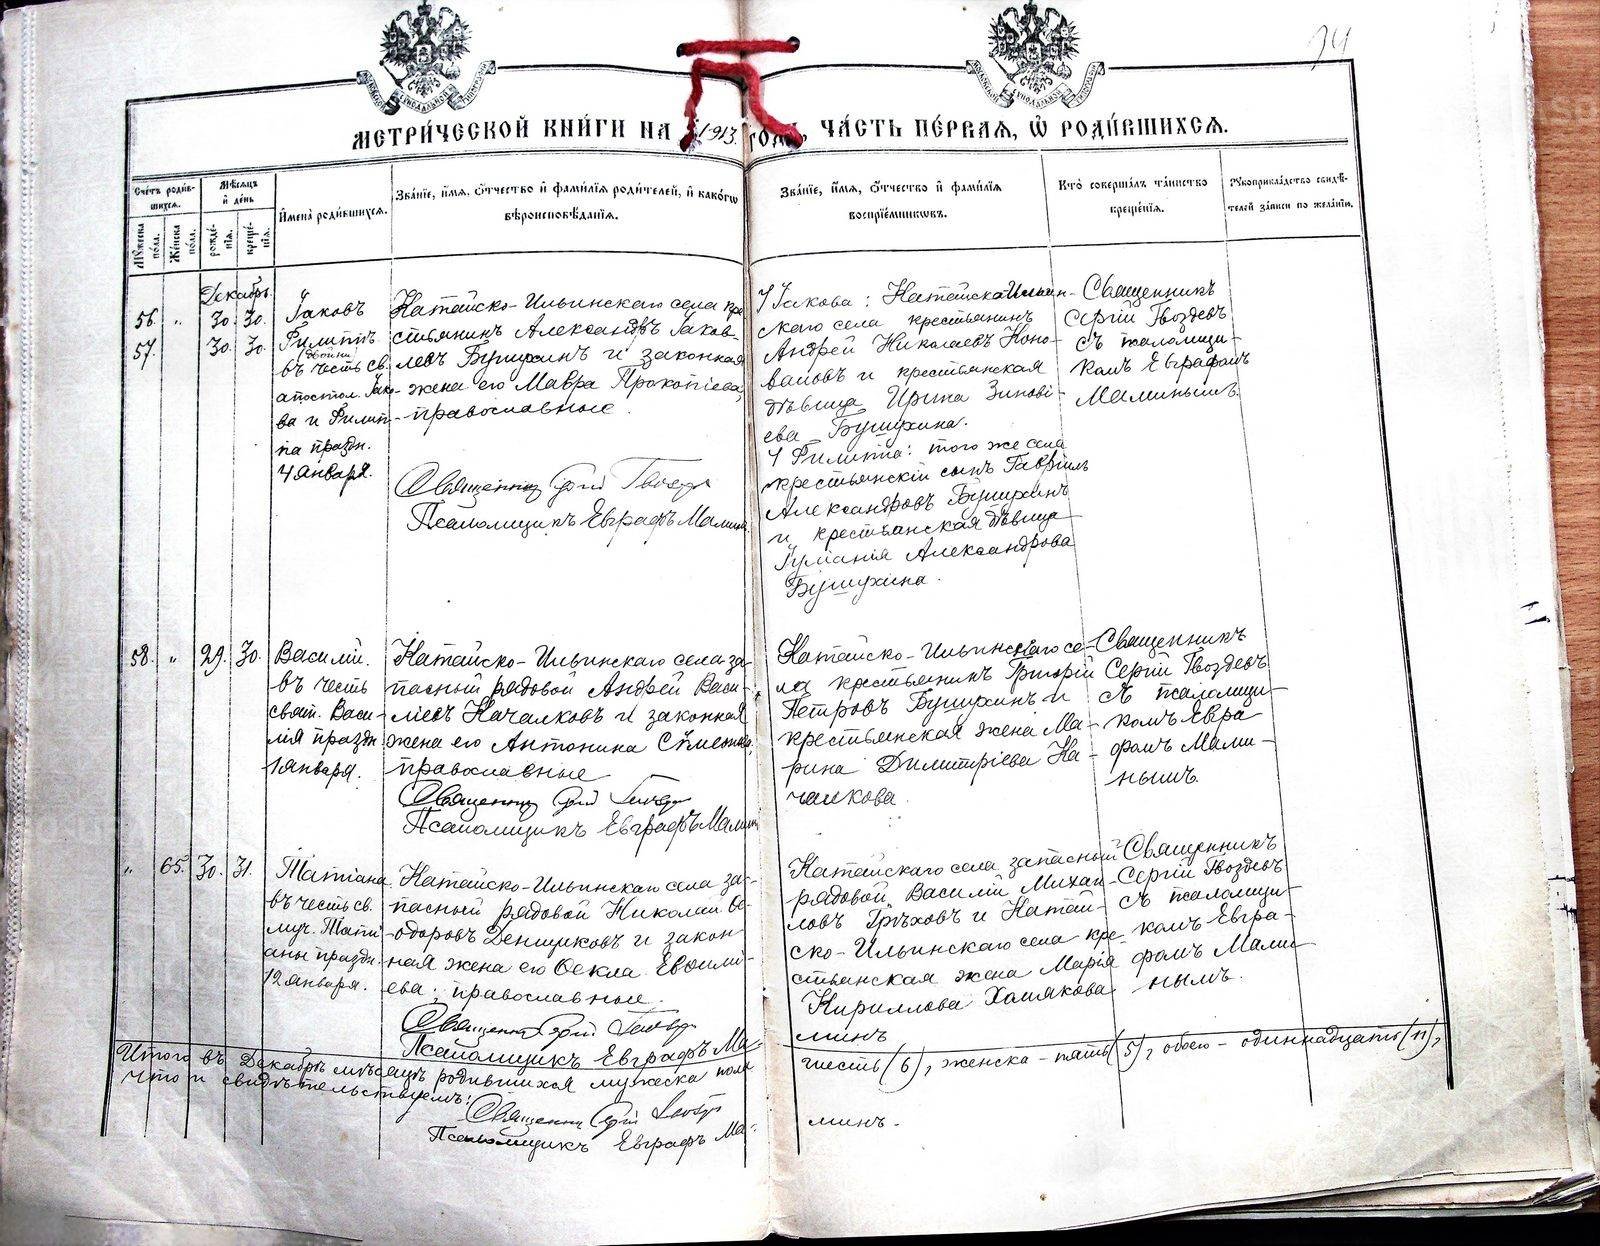 МЕТРИ́ЧЕСКОЙ КНИ́ГИ НА 1913 ГОДЪ, ЧА́СТЬ ПЕ́РВАЯ, Ѡ РОДИ́ВШИХСЯ.
Сче́тъ роди́в-
шихся.
Му́жеска по́ла.
Же́нска по́ла.
Мѣ́сяцъ и де́нь
рожде́-
нія.
креще́-
нія.
Имена́ роди́вшихся.
Зва́ніе, и́мя, о́тчество и фами́лія роди́телей, и како́гѡ
вѣроисповѣ́данія.
Зва́ніе, и́мя, о́тчество и фами́лія
воспріе́мниковъ.
Кто̀ соверша́лъ та́инство
креще́нія.
Рукоприкла́дство свидѣ́-
телей за́писи по жела́нію.
Декабрь
56. " 30. 30.
57. 30. 30.
Іаковъ
Филиппъ
двойни
въ честь св.
апостол. Іако-
ва и Филип-
па праздн.
4 января.
Катайско-Ильинскаго села кре-
стьянинъ Александръ Іаков-
левъ Бушухинъ и законная
жена его Мавра Прокопіева,
православные.
Священникъ Сергій Гвоздевъ
Псаломщикъ Евграфъ Малинъ
У Іакова: Катайско-Ильин-
скаго села крестьянинъ
Андрей Николаевъ Коно-
валовъ и крестьянская
дѣвица Ирина Зинові-
ева Бушухина.
У Филиппа: того же села
крестьянскій сынъ Гавріилъ
Александровъ Бушухинъ
и крестьянская дѣвица
Александрова
Бушухина.
Священникъ
Сергій Гвоздевъ
съ псаломщи-
комъ Евграфомъ
Малинымъ.
58. " 29. 30.
Василій.
въ честь
свят. Васи-
лія праздн
1 января.
Катайско-Ильинскаго села за-
пасный рядовой Андрей Васи-
льевъ Качалковъ и законная
жена его Антонина Сѵмеонова,
православные
Священникъ Сергій Гвоздевъ
Псаломщикъ Евграфъ Малинъ
Катайско-Ильинскаго се-
ла крестьянинъ Григорій
Петровъ Бушухинъ и
крестьянская жена Ма-
рина Димитріева Ка-
чалкова.
Священникъ
Сергій Гвоздевъ
съ псаломщи-
комъ Евгра
фомъ Мали-
нымъ.
" 65. 30. 31.
Татіана
въ честь св.
муч. Тати
аны праздн.
12 января.
Катайско-Ильинскаго села за-
пасный рядовой Николай Ѳе-
одоровъ Денщиковъ и закон
ная жена его Ѳекла Евѳимі-
ева, православные.
Священникъ Сергій Гвоздевъ
Псаломщикъ Евграфъ Ма-
Катайскаго села запасный
рядовой Василій Михаи-
ловъ Грѣховъ и Катай-
ско-Ильинскаго села кре-
стьянская жена Марія
Кириллова Холякова
линъ
Священникъ
Сергій Гвоздевъ
съ псаломщи-
комъ Евгра-
фомъ Мали
нымъ.
Итого въ Декабрѣ мѣсяцѣ родившихся мужеска пола шесть (6), женска - пять (5), обоего - одиннадцать (11),
что и свидѣтельствуемъ:
Священникъ Сергій Гвоздевъ
Псаломщикъ Евграфъ Ма- линъ.